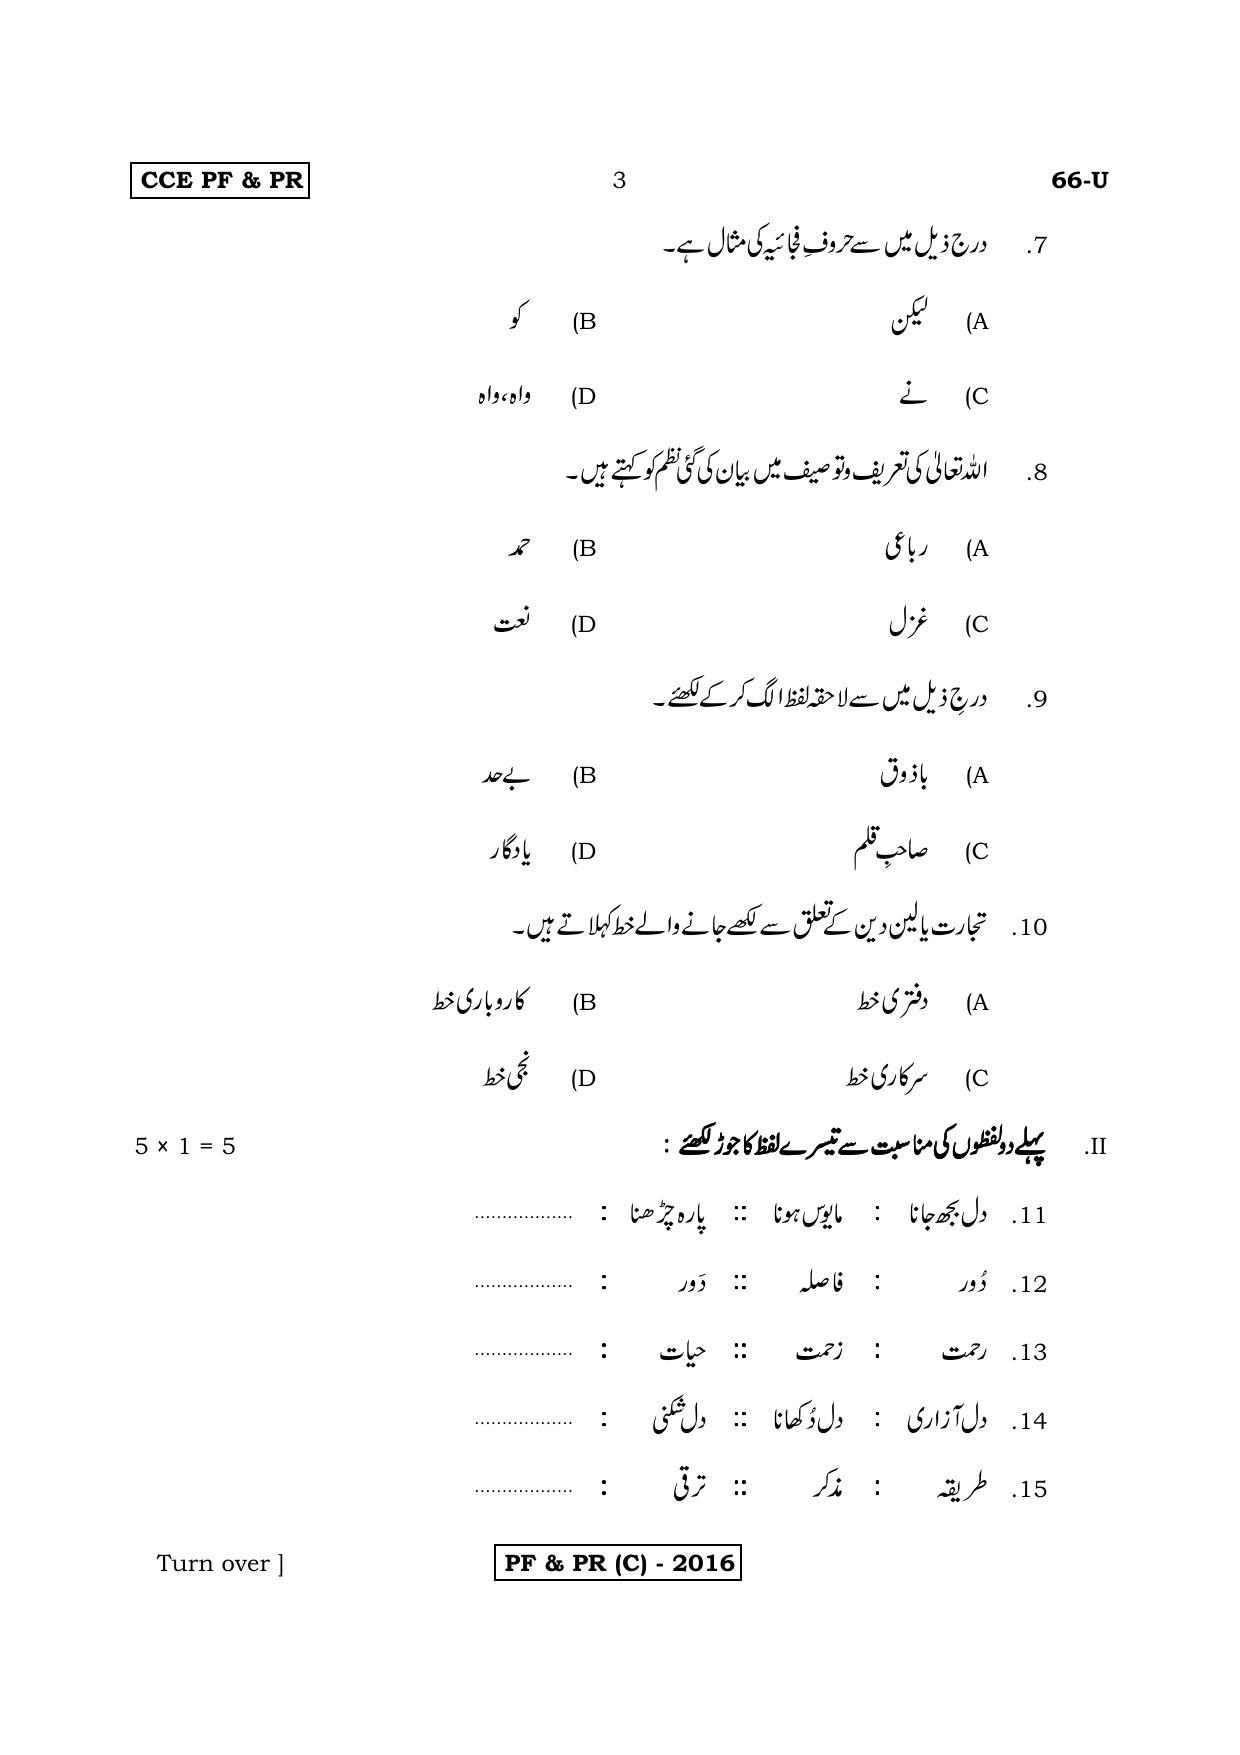 CCE PF & PR 3 66-U
7. درج ذیل میں سے حروفِ فجائیہ کی مثال ہے۔
A) لیکن B) کو
C) نے D) واہ، واہ
8. اللہ تعالیٰ کی تعریف و توصیف میں بیان کی گئی نظم کو کہتے ہیں۔
A) رباعی B) حمد
C) غزل D) نعت
9. درجِ ذیل میں سے لاحقہ لفظ الگ کر کے لکھئے۔
A) باذوق B) بے حد
C) صاحبِ قلم D) یادگار
10. تجارت یا لین دین کے تعلق سے لکھے جانے والے خط کہلاتے ہیں۔
A) دفتری خط B) کاروباری خط
C) سرکاری خط D) نجی خط
II. پہلے دو لفظوں کی مناسبت سے تیسرے لفظ کا جوڑ لکھئے : 5 × 1 = 5
11. دل بجھ جانا : مایوس ہونا :: پارہ چڑھنا : ..................
12. دُور : فاصلہ :: دَور : ..................
13. رحمت : زحمت :: حیات : ..................
14. دل آزاری : دل دُکھانا :: دل شکنی : ..................
15. طریقہ : مذکر :: ترقی : ..................
Turn over ] PF & PR (C) - 2016